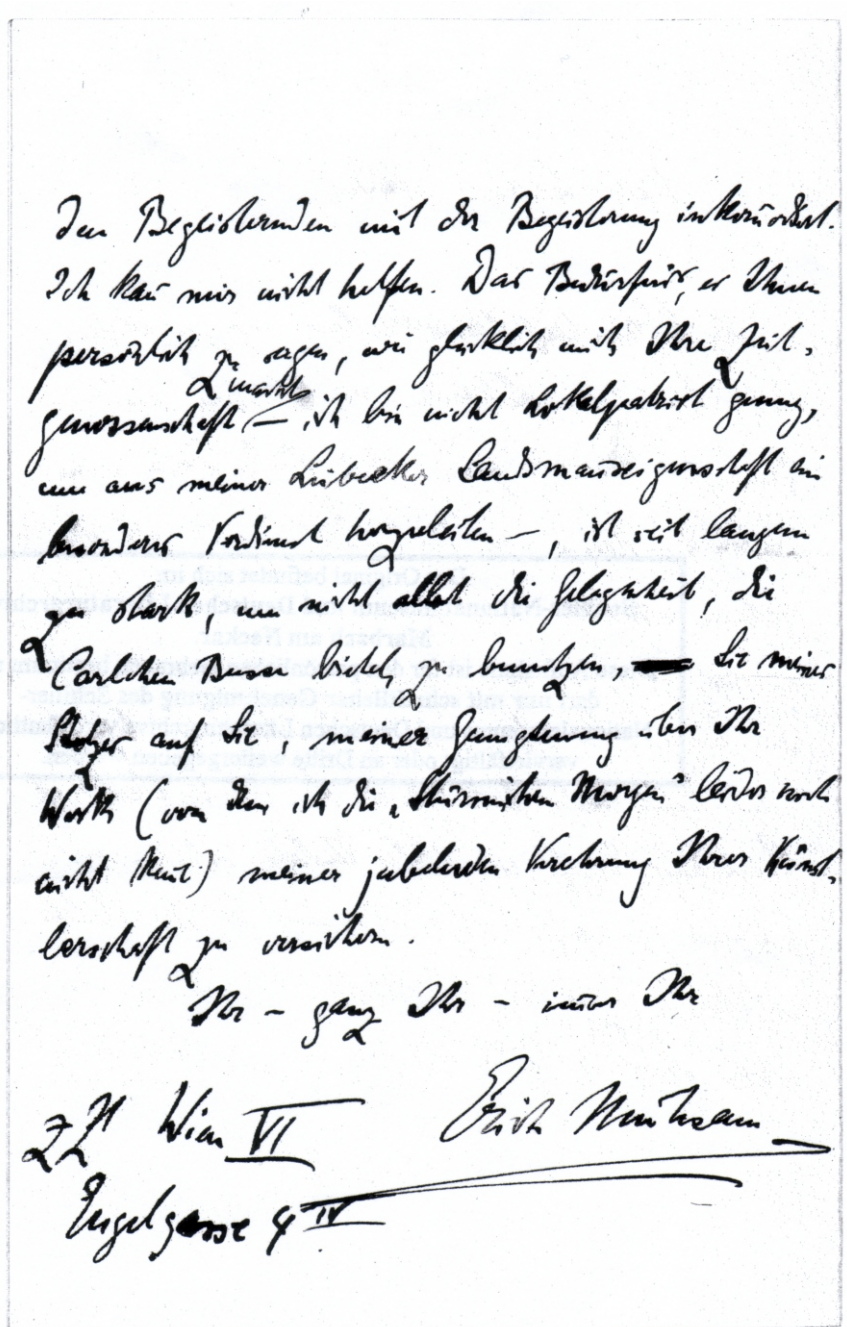 den Begeisternden mit der Begeisterung inkom̄odirt.
Ich kan̄ mir nicht helfen. Das Bedürfnis, es Ihnen
persönlich zu sagen, wie glücklich mich Ihre Zeit-
macht
genossenschaft – ich bin nicht Lokalpatriot genug,
um aus meiner Lübecker Landsman̄eigenschaft ein
besonderes Verdienst herzuleiten –, ist seit langem
zu stark, um nicht selbst die Gelegenheit, die
Carlchen Busse bietet, zu benutzen, Sie meines
Stolzes auf Sie, meiner Genugtuung über Ihr
Werk (von dem ich die „Stürmischen Morgen“ leider noch
nicht ken̄e) meiner jubelnden Verehrung Ihrer Künst-
lerschaft zu versichern.
Ihr – ganz Ihr – im̄er Ihr
Erich Mühsam
zZt Wien VI
Engelgasse 4 IV